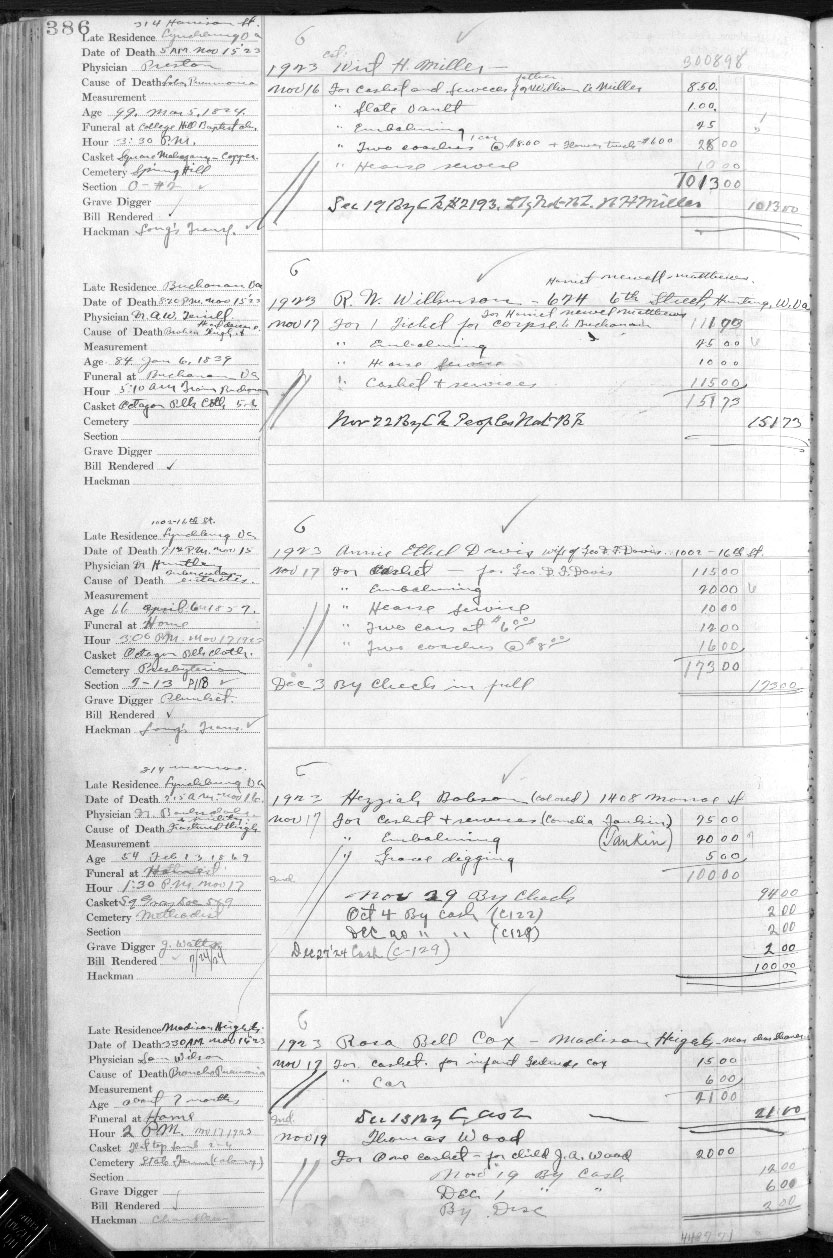 386
214 Harrison St.
Late Residence Lynchburg Va
Date of Death 5 AM. Nov 15 '23
Physician Preston
Cause of Death Lobar Pneumonia
Measurement
Age 99. Mar 5, 1824.
Funeral at College Hill Baptist Ch.
Hour 3:30 P.M.
Casket Square Mahogany - Copper
Cemetery Spring Hill
Section O-#2
Grave Digger
Bill Rendered
Hackman Long's Transf.
6
300898
1923 Wirt H. Miller
father
Nov 16 For casket and services for William A Miller 850.
" Slate Vault 100.
" Embalming 25
" Two coaches @ $8.00 + Flower truck $6.00 28 00
" Hearse service 10 00
1013 00
Dec 19 By Ck #2193, Nat. Bk. W H Miller 1013 00
Late Residence Buchanan Va
Date of Death 8:20 P.M. Nov 15 '23
Physician Dr. A.W. Terrell
Cause of Death Broken thigh
Measurement
Age 84 Jan 6, 1839
Funeral at Buchanan Va
Hour 5:10 AM Train Buchanan
Casket Octagon Blk Cloth
Cemetery
Section
Grave Digger
Bill Rendered
Hackman
6
Harriet Newell Matthews.
1923 R. W. Wilburson - 674 6th Street, Hunting, W. Va
for Harriet Newel Matthews
Nov 17 For 1 Ticket for corpse to Buchanan 11 73
" Embalming
" Hearse Service 10 00
" Casket + services 115 00
151 73
Nov 22 By Ck Peoples Nat. Bk 151 73
1002-16th St.
Late Residence Lynchburg Va
Date of Death P.M. Nov 15
Physician Dr Huntley
Cause of Death
Measurement
Age 66 April 6 1857.
Funeral at Home
Hour 3:00 P.M. Nov 17 1923
Casket Octagon Blk cloth.
Cemetery Presbyterian
Section
Grave Digger
Bill Rendered
Hackman Long's Trans.
6
1923 Annie Ethel Davis wife of Geo. D. F. Davis. 1002 - 16th St
Nov 17 For Casket - for Geo. D. F. Davis 115 00
" Embalming 20 00
" Hearse Service 10 00
" Two cars at $6.00 12 00
" Two coaches @ $8.00 16 00
173 00
Dec 3 By Check in full 173 00
214 Monroe.
Late Residence Lynchburg Va
Date of Death A.M. Nov 16.
Physician Dr.
Cause of Death Fractured thigh
Measurement
Age 54 Feb 13 1869
Funeral at
Hour 1:30 P.M. Nov 17
Casket
Cemetery Methodist
Section
Grave Digger J. Watts
Bill Rendered 7/24/24
Hackman
5
1923 Hezziah Dobson (colored) 1408 Monroe St
Nov 17 For casket + services (Cornelia Jankin) 75 00
" Embalming (Jankin) 20 00
" Grave digging 5 00
100 00
Nov 29 By Check 94 00
Oct 4 By Cash (C122) 2 00
Dec 20 " " (C128) 2 00
Dec 27 '24 Cash (C-129) 2 00
100 00
Late Residence Madison Heights.
Date of Death 3:30 AM. Nov 16 '23
Physician Wilson
Cause of Death Broncho Pneumonia
Measurement
Age about 7 months
Funeral at Home
Hour 2 P.M. Nov 17 1923
Casket
Cemetery State Farm (Colony)
Section
Grave Digger
Bill Rendered
Hackman
6
1923 Rosa Bell Cox - Madison Heights
Nov 17 For casket. for infant Cox 15 00
" Car 6 00
21 00
Dec 13 By Cash 21 00
Nov 19 Thomas Wood
For One casket - for child J. A. Wood 20 00
Nov 19 By Cash 12 00
Dec 1 " " 6 00
By Disc 2 00